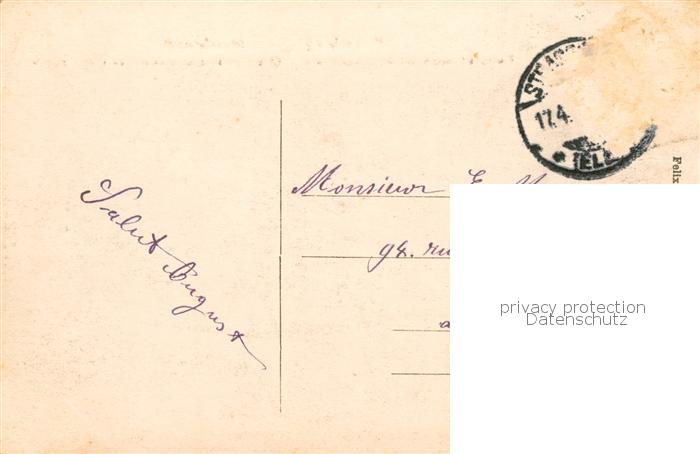 Salut
August
Monsieur E.
94. ru
a
17.4.
Felix
privacy protection
Datenschutz